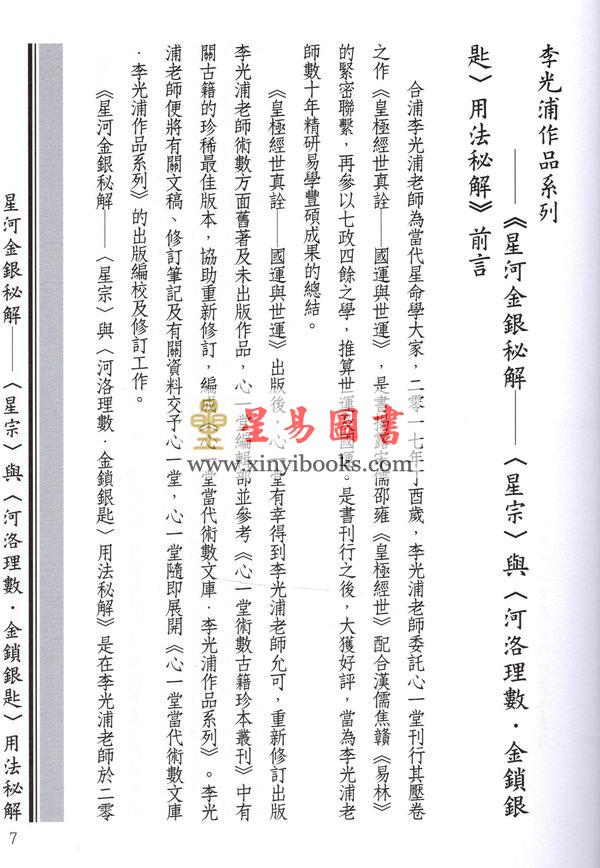 李光浦作品系列
——《星河金銀秘解——〈星宗〉與〈河洛理數·金鎖銀
匙〉用法秘解》前言
合浦李光浦老師為當代星命學大家，二零一七年丁酉歲，李光浦老師委託心一堂刊行其壓卷
之作《皇極經世真詮——國運與世運》，是書揭露宋儒邵雍《皇極經世》配合漢儒焦贛《易林》
的緊密聯繫，再參以七政四餘之學，推算世運及國運。是書刊行之後，大獲好評，當為李光浦老
師數十年精研易學豐碩成果的總結。
《皇極經世真詮——國運與世運》出版後，心一堂有幸得到李光浦老師允可，重新修訂出版
李光浦老師術數方面舊著及未出版作品，心一堂編輯部並參考《心一堂術數古籍珍本叢刊》中有
關古籍的珍稀最佳版本，協助重新修訂，編成《心一堂當代術數文庫·李光浦作品系列》。李光
浦老師便將有關文稿、修訂筆記及有關資料交予心一堂，心一堂隨即展開《心一堂當代術數文庫
·李光浦作品系列》的出版編校及修訂工作。
《星河金銀秘解——〈星宗〉與〈河洛理數·金鎖銀匙〉用法秘解》是在李光浦老師於二零
星河金銀秘解——〈星宗〉與〈河洛理數·金鎖銀匙〉用法秘解
7
星易圖書
www.xinyibooks.com